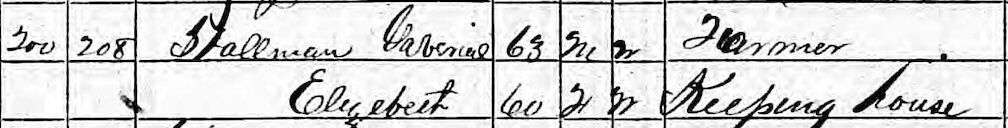 200 208 Stallman Gaberial 63 M W Farmer
Elizebeth 60 F W Keeping house